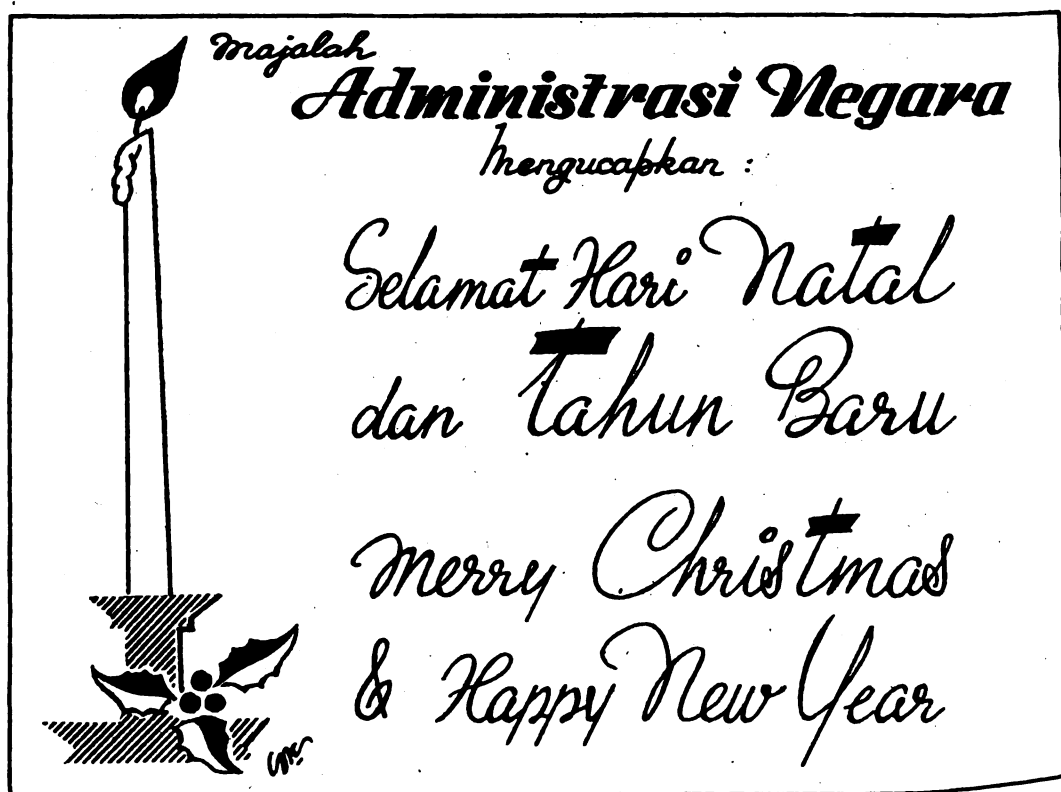 Majalah
Administrasi Negara
Mengucapkan :
Selamat Hari Natal
dan Tahun Baru
Merry Christmas
& Happy New Year